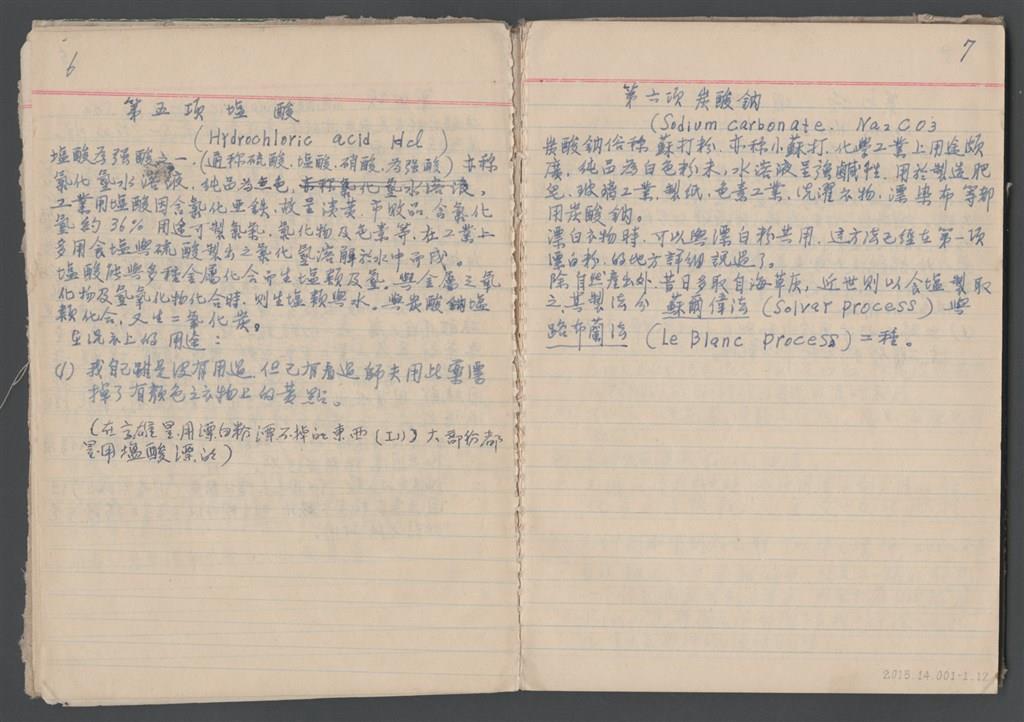 6
第五項 塩 酸
(Hydrochloric acid Hcl)
塩酸為強酸之一.(通稱硫酸.塩酸.硝酸.為強酸)亦稱
氯化氢水溶液,純品為無色,亦称氯化氢水溶液,
工業用塩酸因含氯化亜鉄,故呈淡黄.市收品.含氯化
氢約36%用途可製氯氣,氯化物及色素等.在工業上
多用食塩與硫酸製出之氯化氢溶解於水中而成。
塩酸能與多種金屬化合而生塩類及氢。與金屬之氧
化物及氢氧化物化合時.则生塩類與水。與炭酸鈉塩
類化合,又生二氧化炭。
在洗衣上的用途:
(1) 我自己雖是没有用過.但已有看過師夫用此藥漂
掉了有顏色之衣物上的黄點。
(在高雄是用漂白粉漂不掉的東西(工川)大部份都
是用塩酸漂的)
7
第六項 炭酸鈉
(Sodium carbonate. Na2CO3
炭酸鈉俗稱 蘇打粉.亦稱小蘇打.化學工業上用途頗
廣,純品為白色粉末,水溶液呈強鹹性.用於製造肥
皂.玻璃工業.製紙.色素工業.洗濯衣物,漂染布等都
用炭酸鈉。
漂白衣物時.可以與漂白粉共用.這方法已經在第一項
漂白粉.的地方詳細説過了。
除自然產出外.昔日多取自海草灰,近世則以食塩製取
之.其製法分 蘇爾偉法(Solvar process)與
路布蘭法 (Le Blanc process)二種。
2015.14.001-1.12